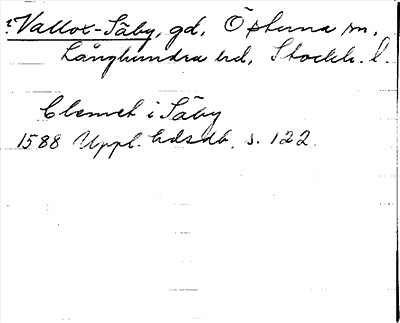 ?Vallox-Säby, gd, Östuna sn,
Långhundra hd, Stockh. l.
Clemet i Säby
1588 Uppl. hdsdb. s. 122.